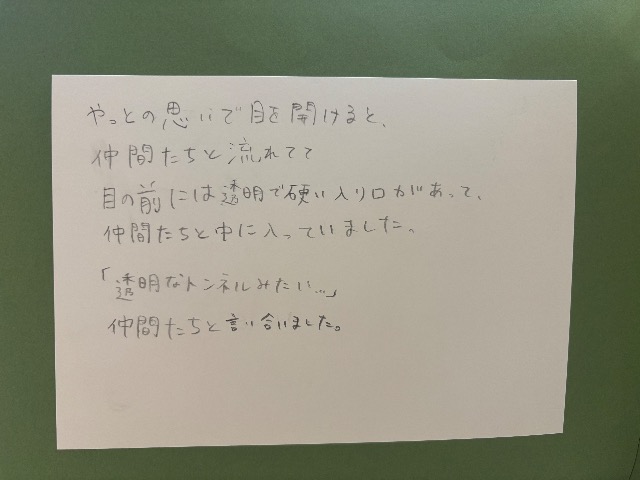 やっとの思いで目を開けると、
仲間たちと流れてて
目の前には透明で硬い入り口があって、
仲間たちと中に入っていました。
「透明なトンネルみたい…」
仲間たちと言い合いました。